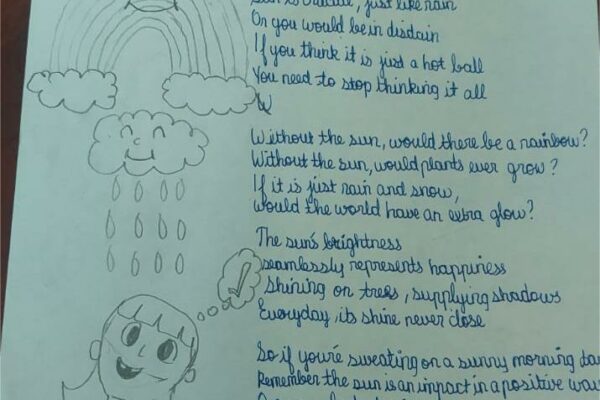 Sun is crucial, just like rain
Or you would be in disdain
If you think it is just a hot ball
You need to stop thinking it all
W
Without the sun, would there be a rainbow?
Without the sun, would plants ever grow?
If it is just rain and snow,
would the world have an extra glow?
The sun's brightness
seamlessly represents happiness
Shining on trees, supplying shadows
Everyday, its shine never close
So if you're sweating on a sunny morning
Remember the sun is an impact in a positive way